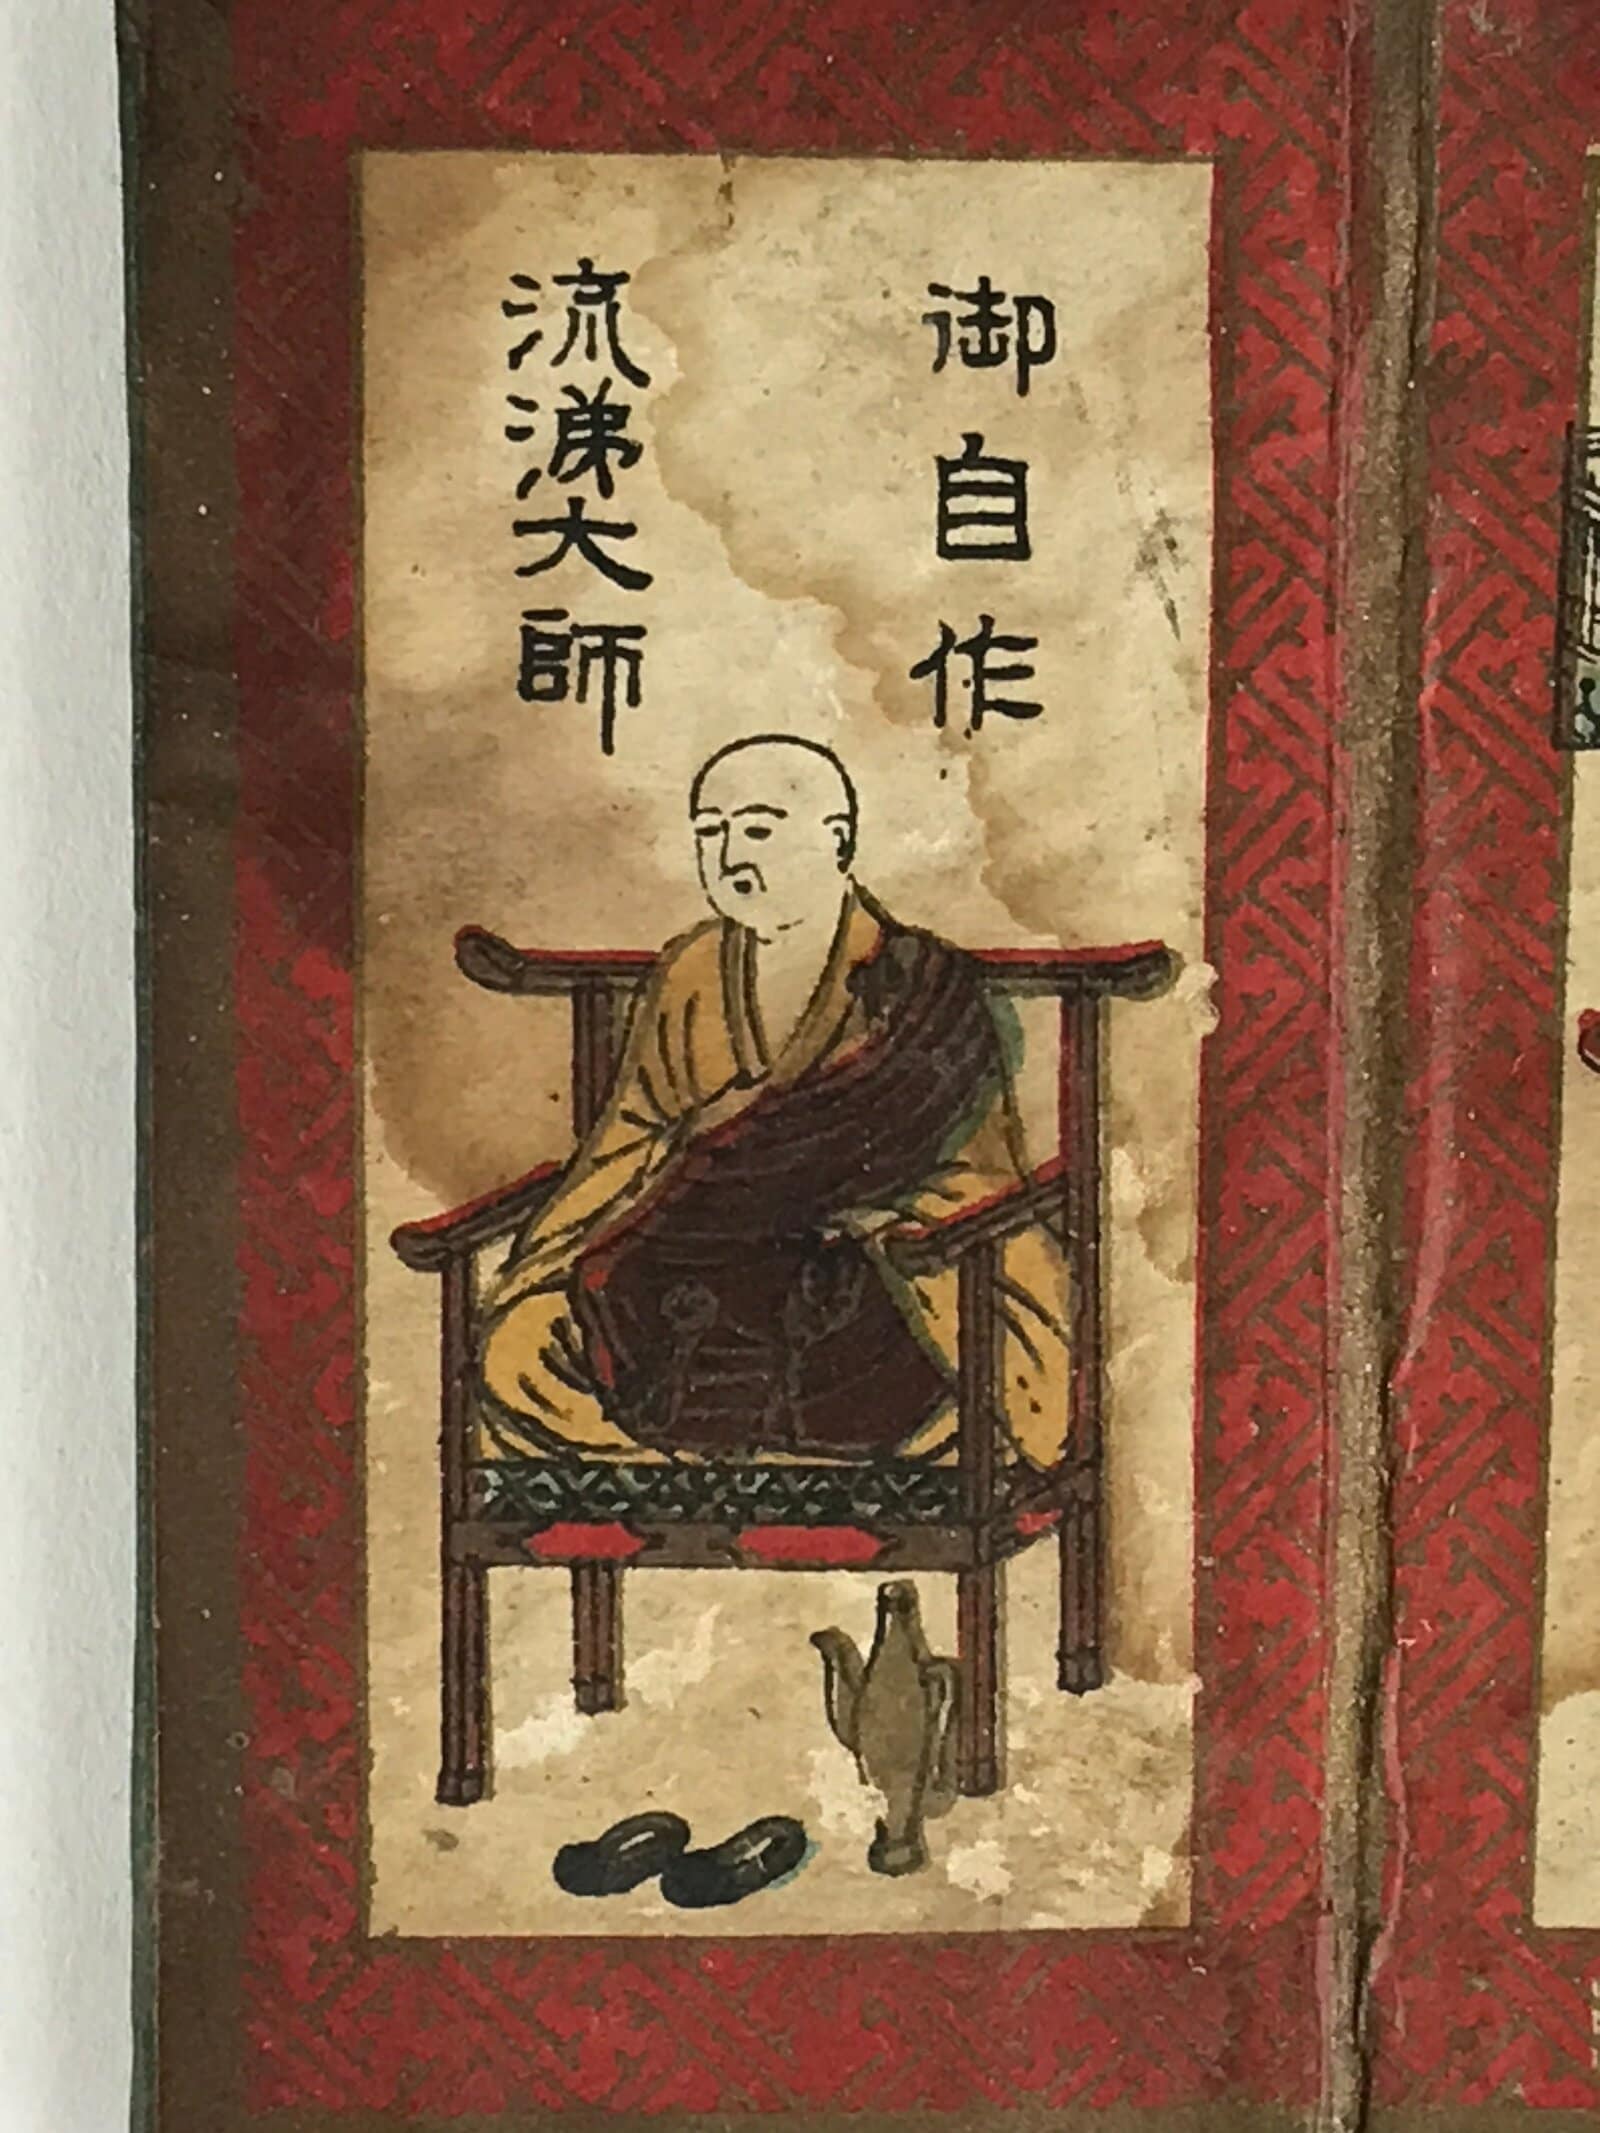 御自作
流涕大師